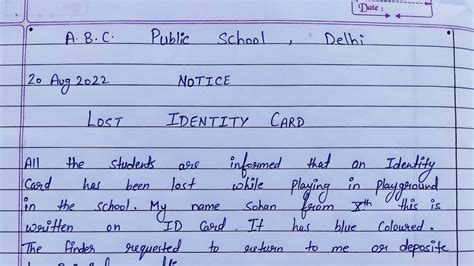 Date :
A.B.C. Public School , Delhi
20 Aug 2022 NOTICE
LOST IDENTITY CARD
All the students are informed that on Identity
Card has been lost while playing in playground
in the school. My name Sohan from Xth this is
written on ID Card. It has blue coloured.
The finder requested to return to me or deposite